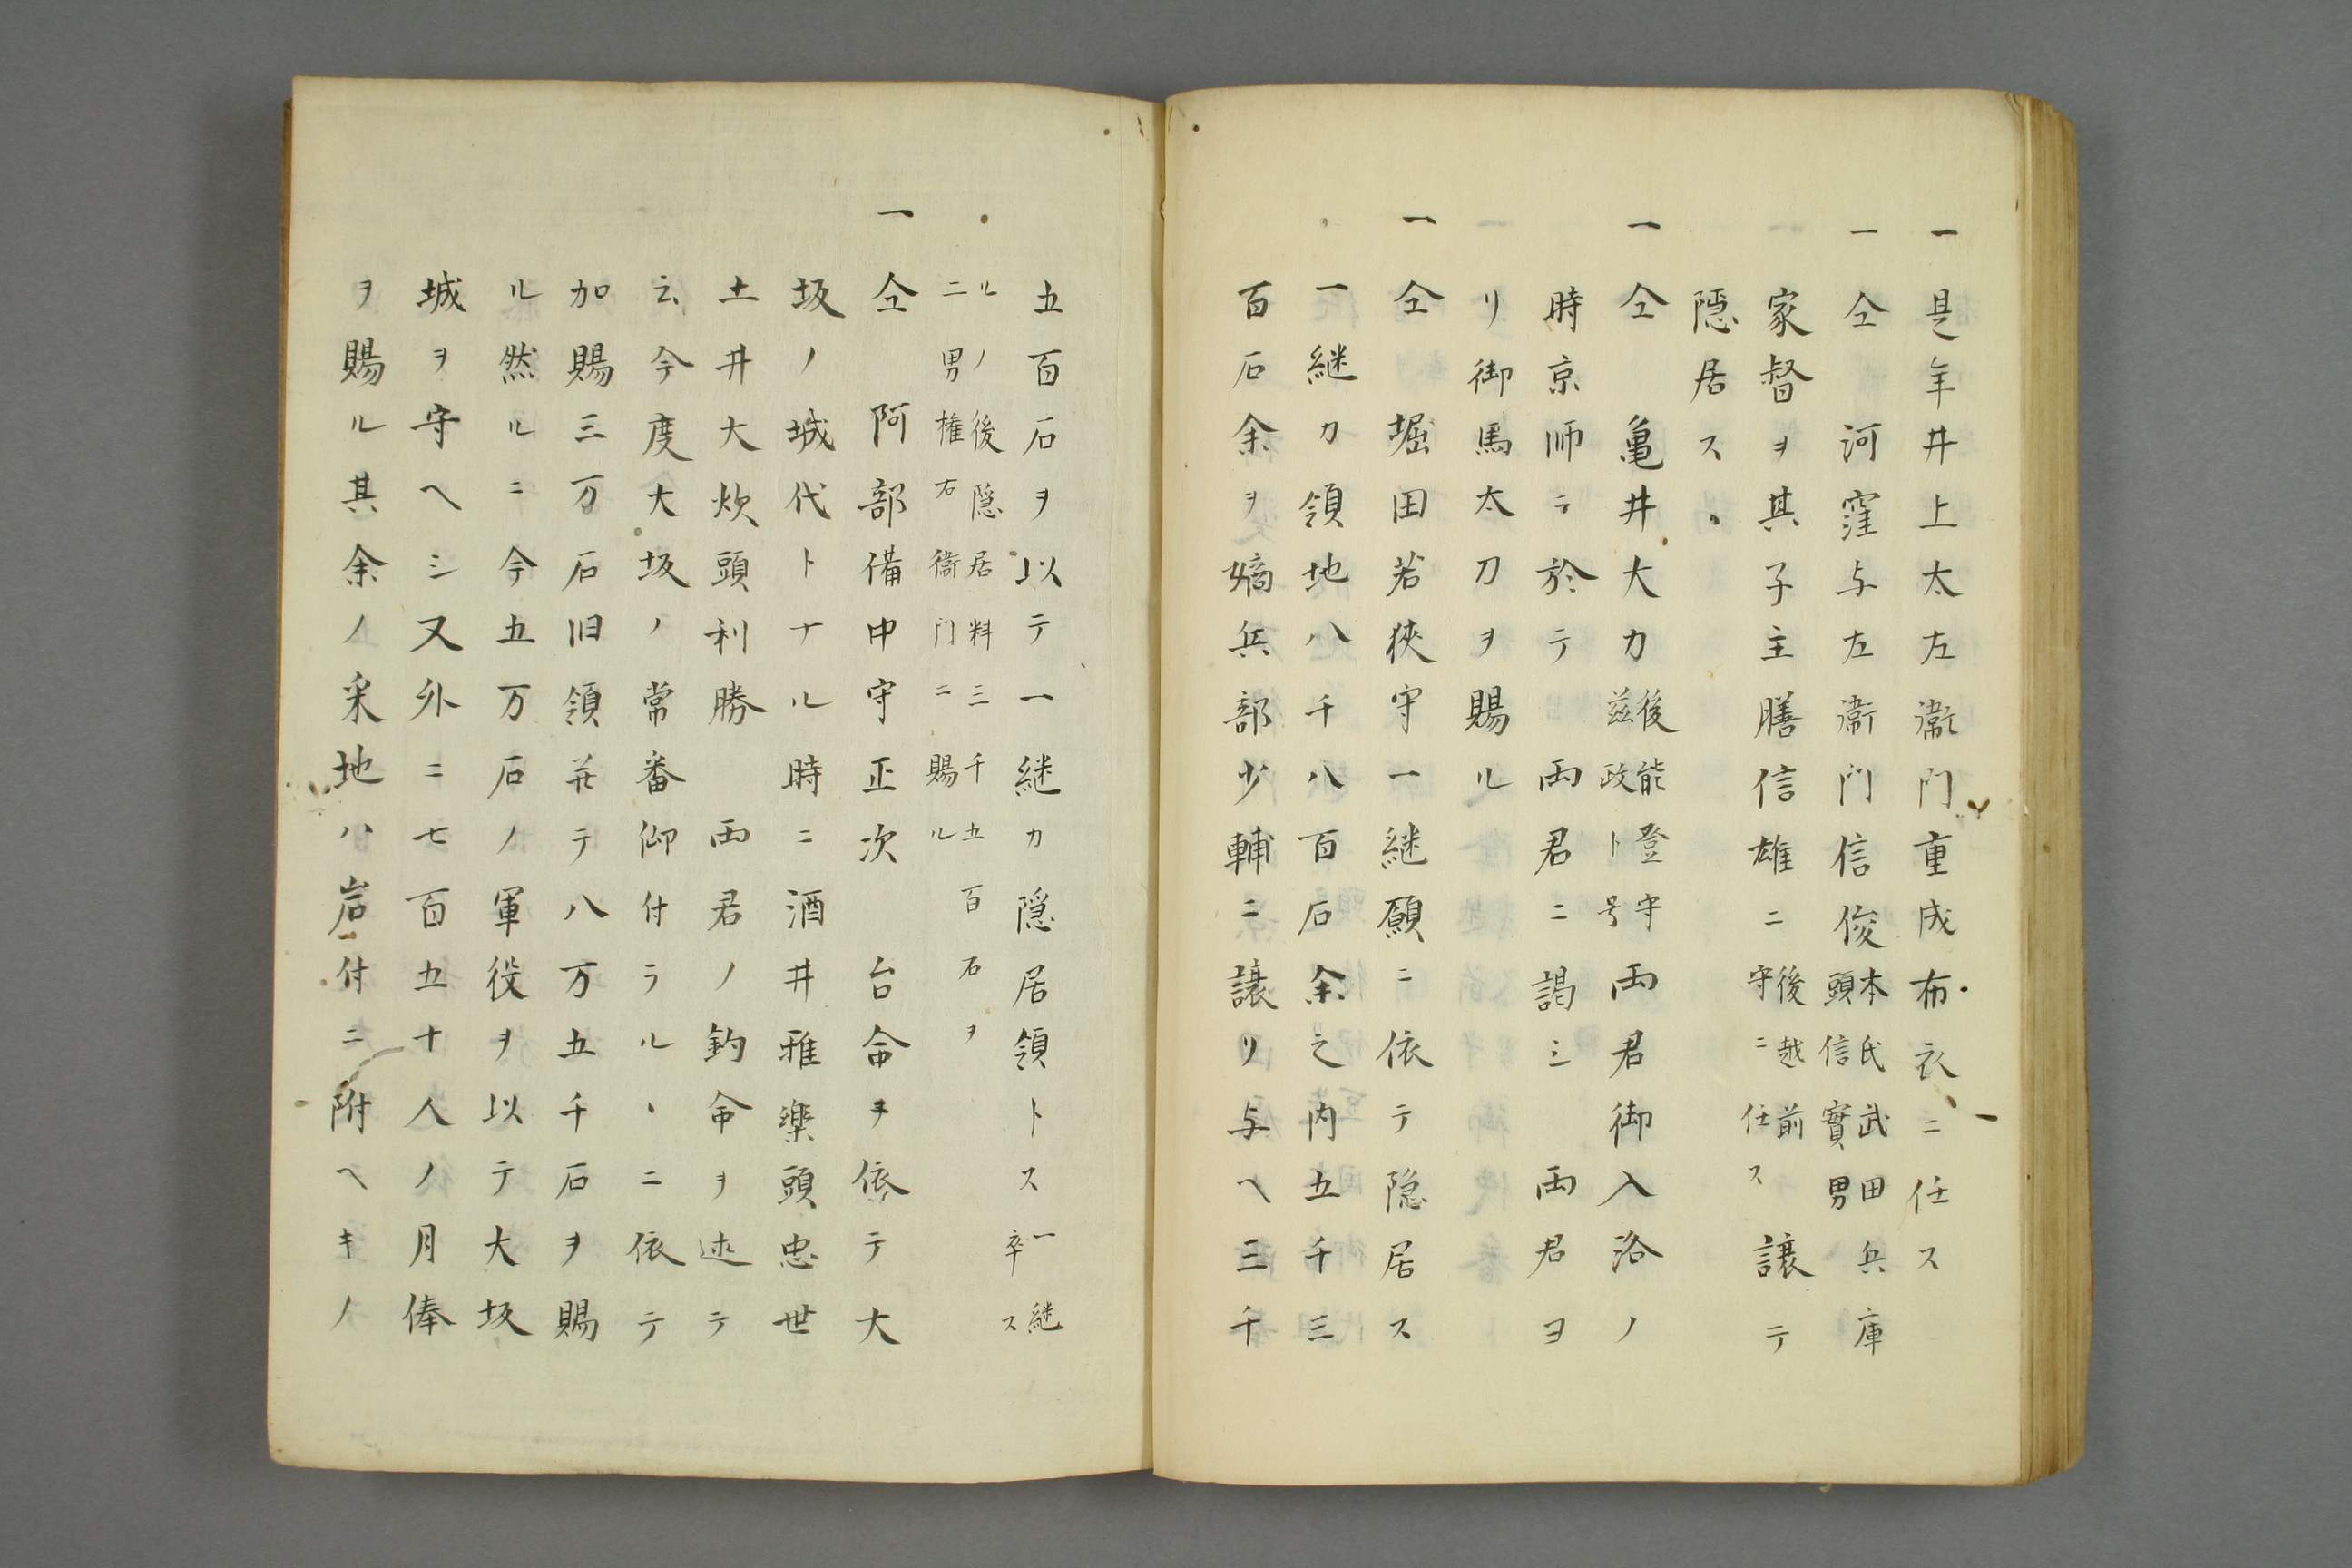 一是年井上太左衛門重成布衣ニ任ス
一仝　河窪与左衛門信俊本氏武田兵庫頭信實男
家督ヲ其子主膳信雄ニ後越前守ニ任ス譲テ
隠居ス
一仝　亀井大力後能登守茲政ト号両君御入洛ノ
時京师ニ於テ　両君ニ謁シ　両君ヨ
リ御馬太刀ヲ賜ル
一仝　堀田若狭守一継願ニ依テ隠居ス
一継カ領地八千八百石余之内五千三
百石余ヲ嫡兵部少輔ニ譲リ与ヘ三千
五百石ヲ以テ一継カ隠居領トス一継卒ス
ルノ後隠居料三千五百石ヲ
二男權右衛門ニ賜ル
一仝　阿部備中守正次　台命ヲ依テ大
坂ノ城代トナル時ニ酒井雅楽頭忠世
土井大炊頭利勝　両君ノ釣命ヲ述テ
云今度大坂ノ常番仰付ラルヽニ依テ
加賜三万石旧領并テ八万五千石ヲ賜
ル然ルニ今五万石ノ軍役ヲ以テ大坂
城ヲ守ヘシ又外ニ七百五十人ノ月俸
ヲ賜ル其余ノ采地ハ岩付ニ附ヘキノ